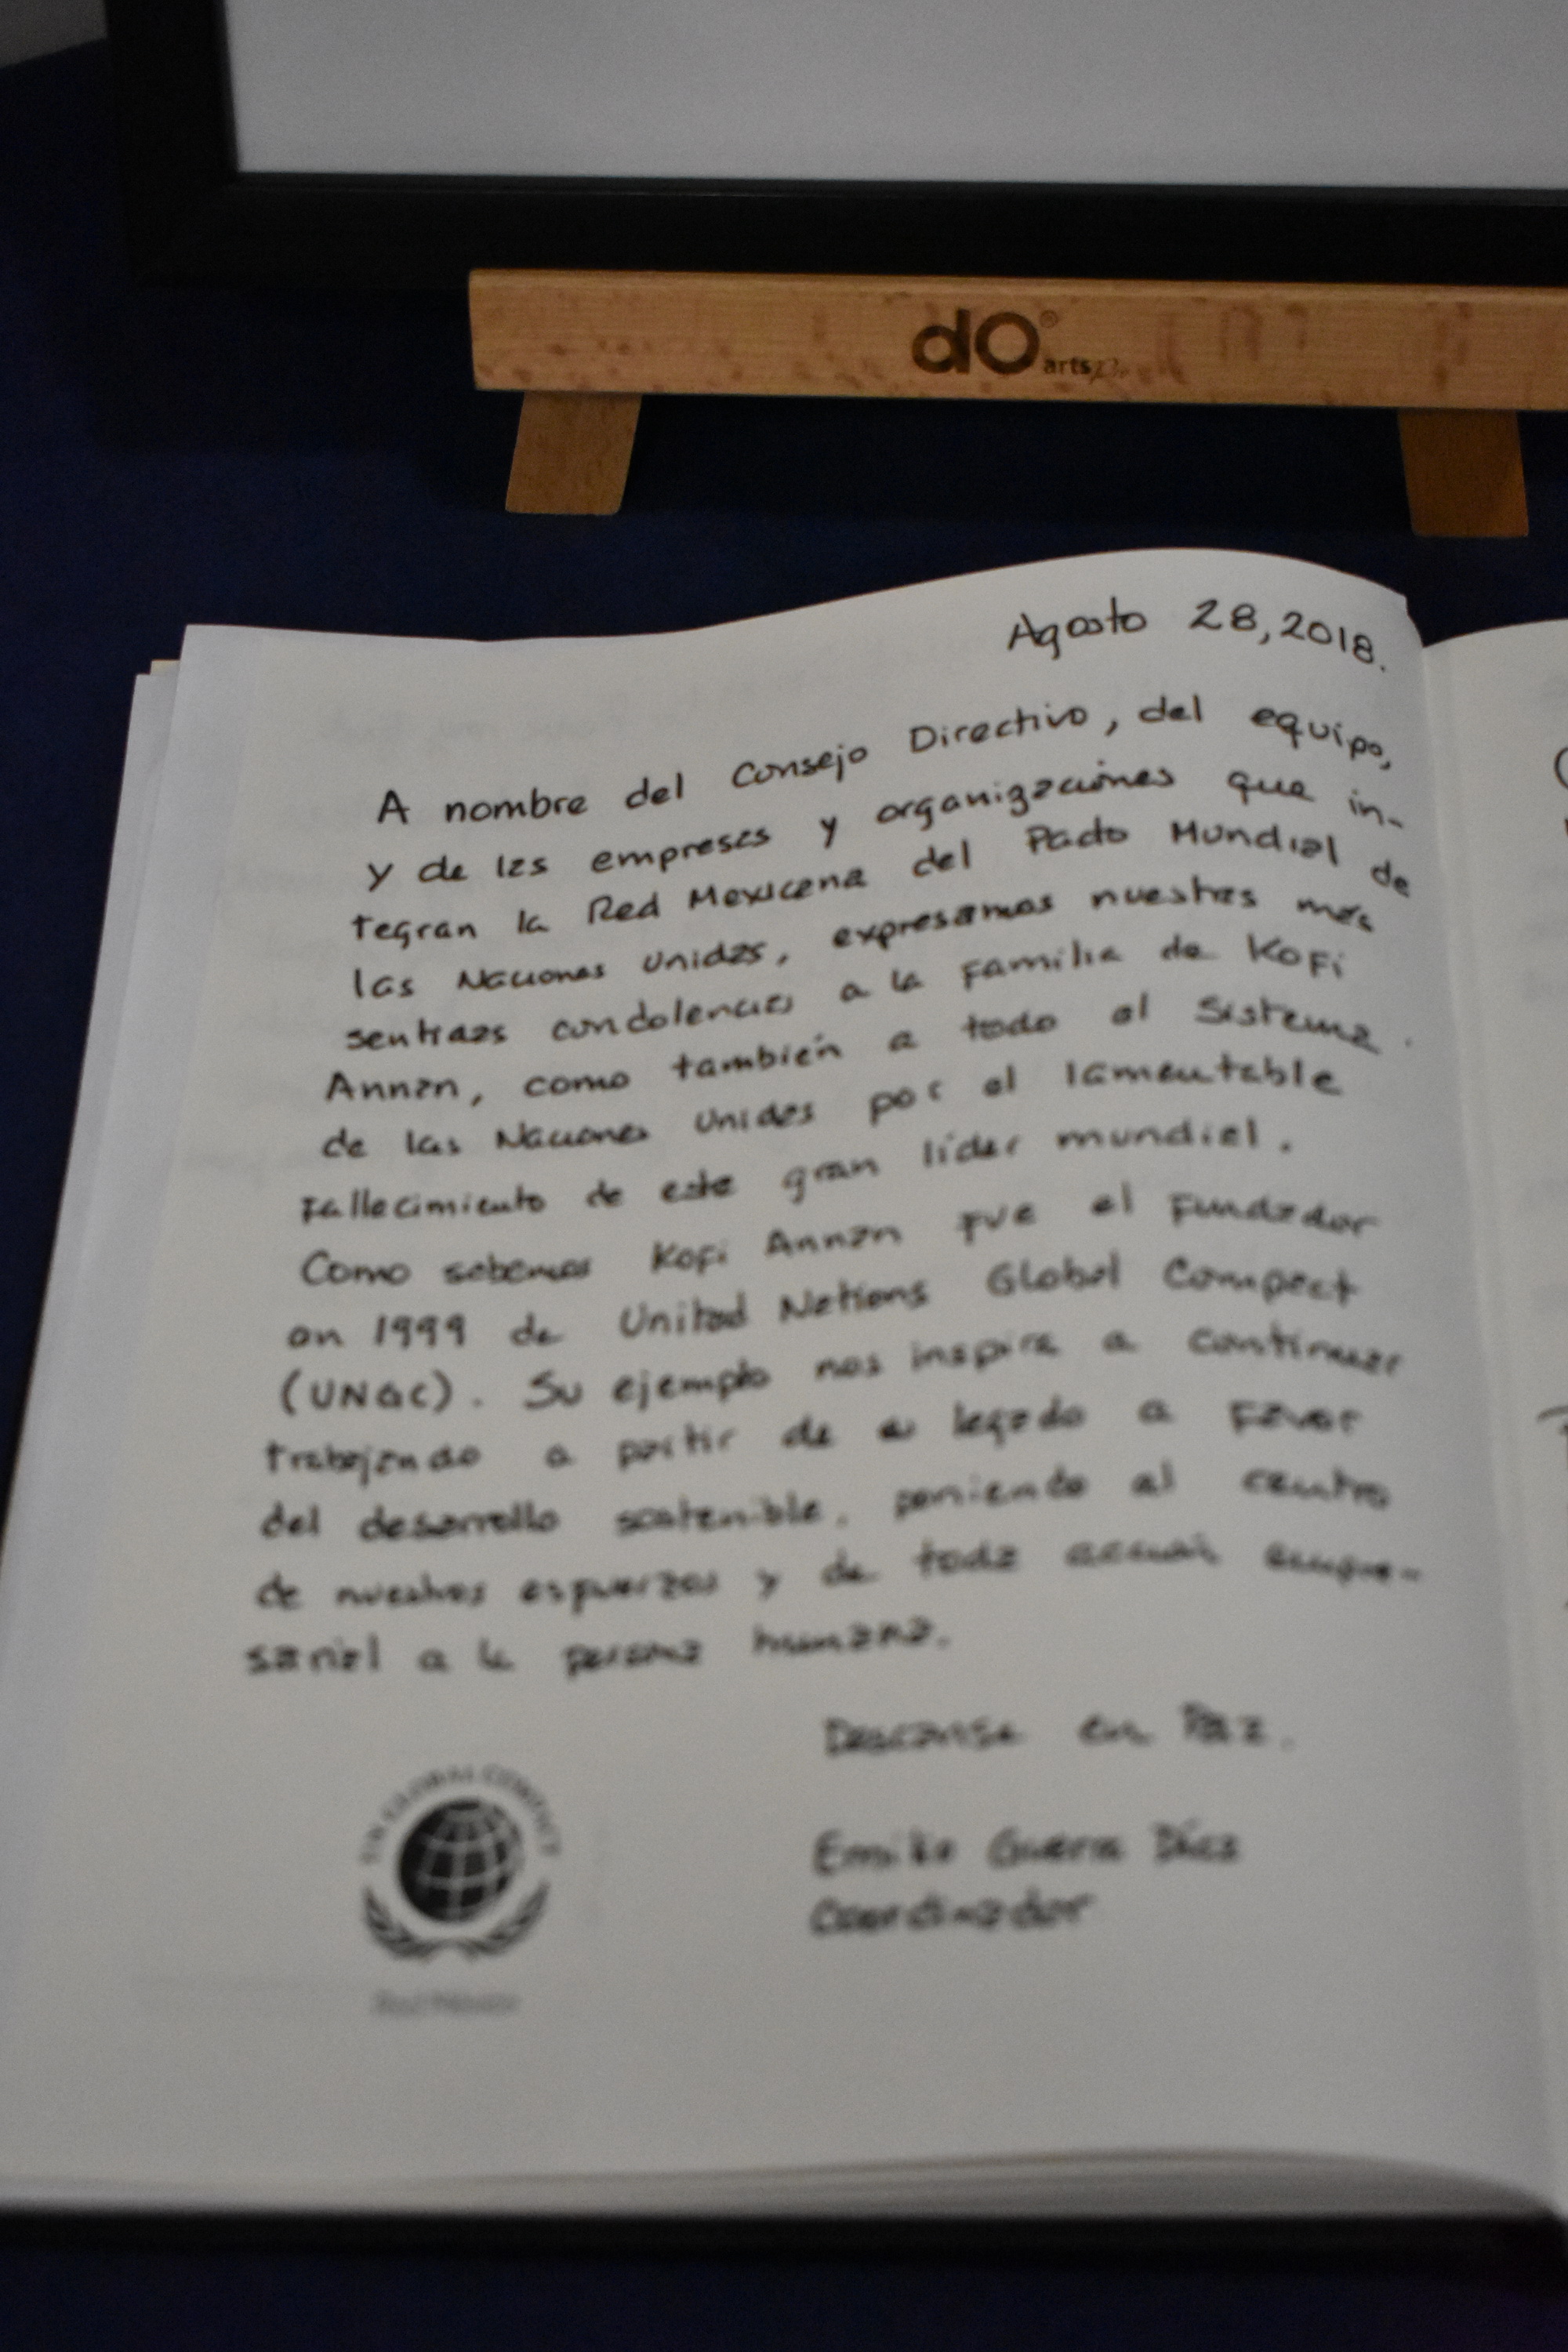 dO®
arts
Agosto 28, 2018.
A nombre del Consejo Directivo, del equipo,
y de las empresas y organizaciones que in-
tegran la Red Mexicana del Pacto Mundial de
las Naciones Unidas, expresamos nuestras más
sentidas condolencias a la familia de Kofi
Annan, como también a todo el Sistema
de las Naciones Unidas por el lamentable
fallecimiento de este gran líder mundial.
Como sabemos Kofi Annan fue el fundador
en 1999 de United Nations Global Compact
(UNGC). Su ejemplo nos inspira a continuar
trabajando a partir de su legado a favor
del desarrollo sostenible, poniendo al centro
de nuestros esfuerzos y de toda acción empre-
sarial a la persona humana.
Descanse en Paz.
UN GLOBAL COMPACT
Emilio Guerra Díaz
Coordinador
Red México